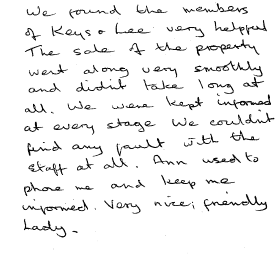 We found the members
of Keys & Lee very helpful
The sale of the property
went along very smoothly
and didn't take long at
all. We were kept informed
at every stage We couldn't
find any fault with the
staff at all. Ann used to
phone me and keep me
informed. Very nice, friendly
Lady.